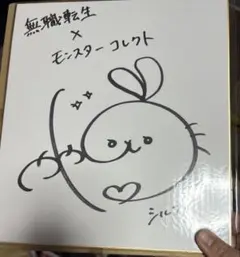 無職転生
×
モンスター コレクト